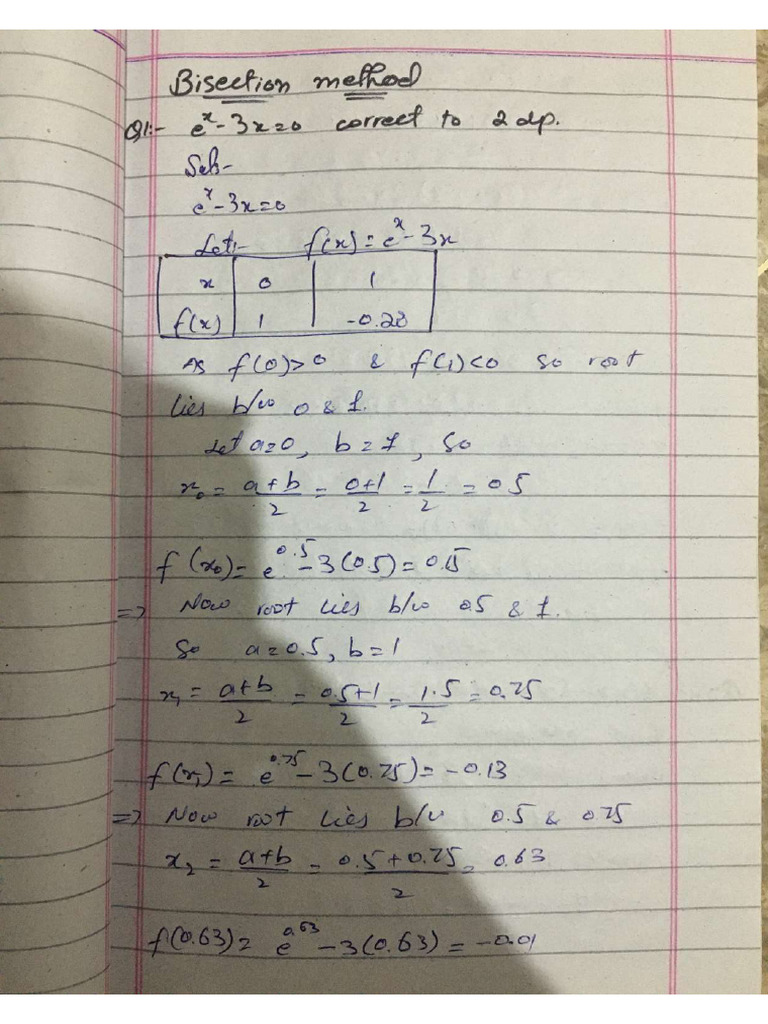 Bisection method
Q1:- e^x - 3x = 0 correct to 2 dp.
Sol:-
e^x - 3x = 0
Let:- f(x) = e^x - 3x
x | 0 | 1
f(x) | 1 | -0.28
As f(0) > 0 & f(1) < 0 so root
lies b/w 0 & 1.
Let a = 0, b = 1, so
x₀ = a+b/2 = 0+1/2 = 1/2 = 0.5
f(x₀) = e^0.5 - 3(0.5) = 0.15
=> Now root lies b/w 0.5 & 1.
So a = 0.5, b = 1
x₁ = a+b/2 = 0.5+1/2 = 1.5/2 = 0.75
f(x₁) = e^0.75 - 3(0.75) = -0.13
=> Now root lies b/w 0.5 & 0.75
x₂ = a+b/2 = 0.5+0.75/2 = 0.63
f(0.63) = e^0.63 - 3(0.63) = -0.01